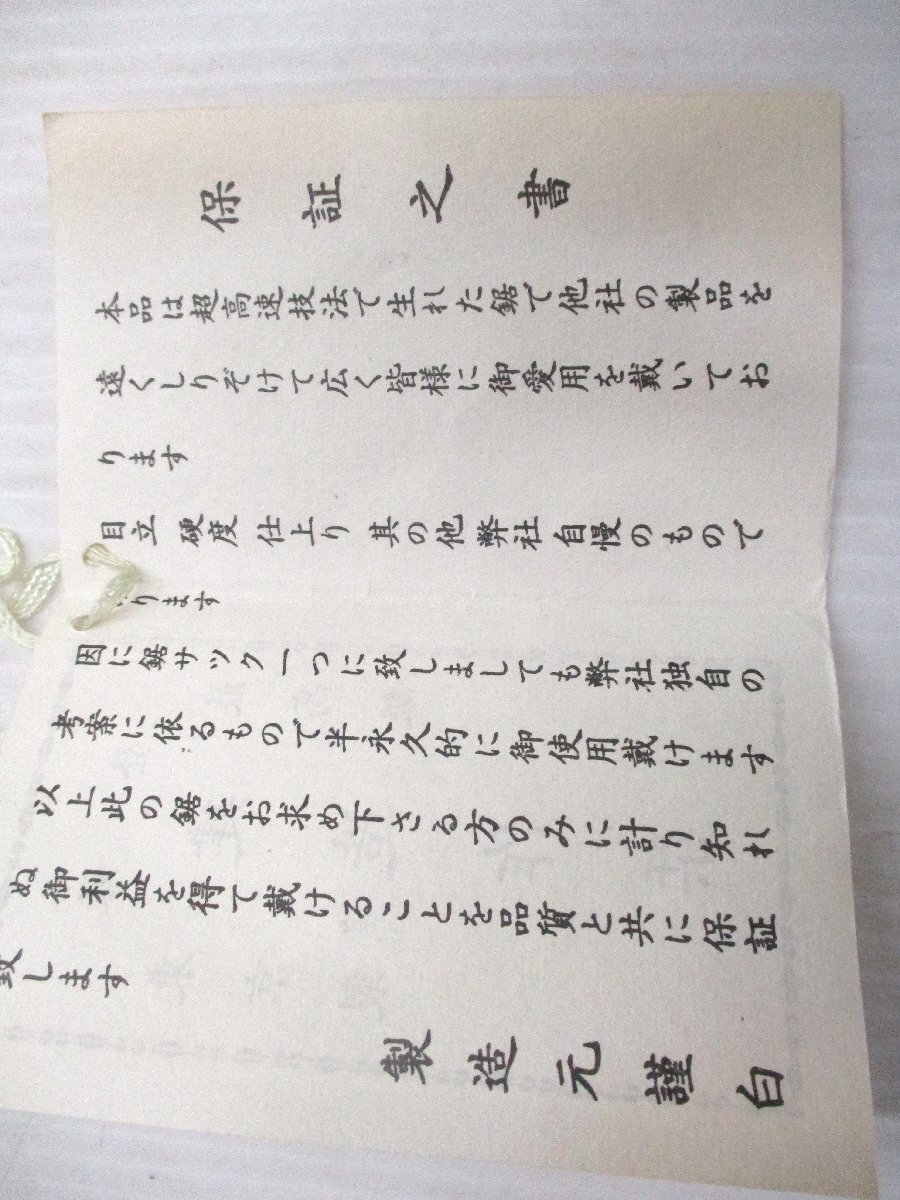 保証之書
本品は超高速技法で生れた鋸で他社の製品を
遠くしりぞけて広く皆様に御愛用を戴いてお
ります
目立 硬度 仕上り 其の他弊社自慢のもので
ります
因に鋸サック一つに致しましても弊社独自の
考案に依るもので半永久的に御使用戴けます
以上此の鋸をお求め下さる方のみに計り知れ
ぬ御利益を得て戴けることを品質と共に保証
致します
製造元謹白